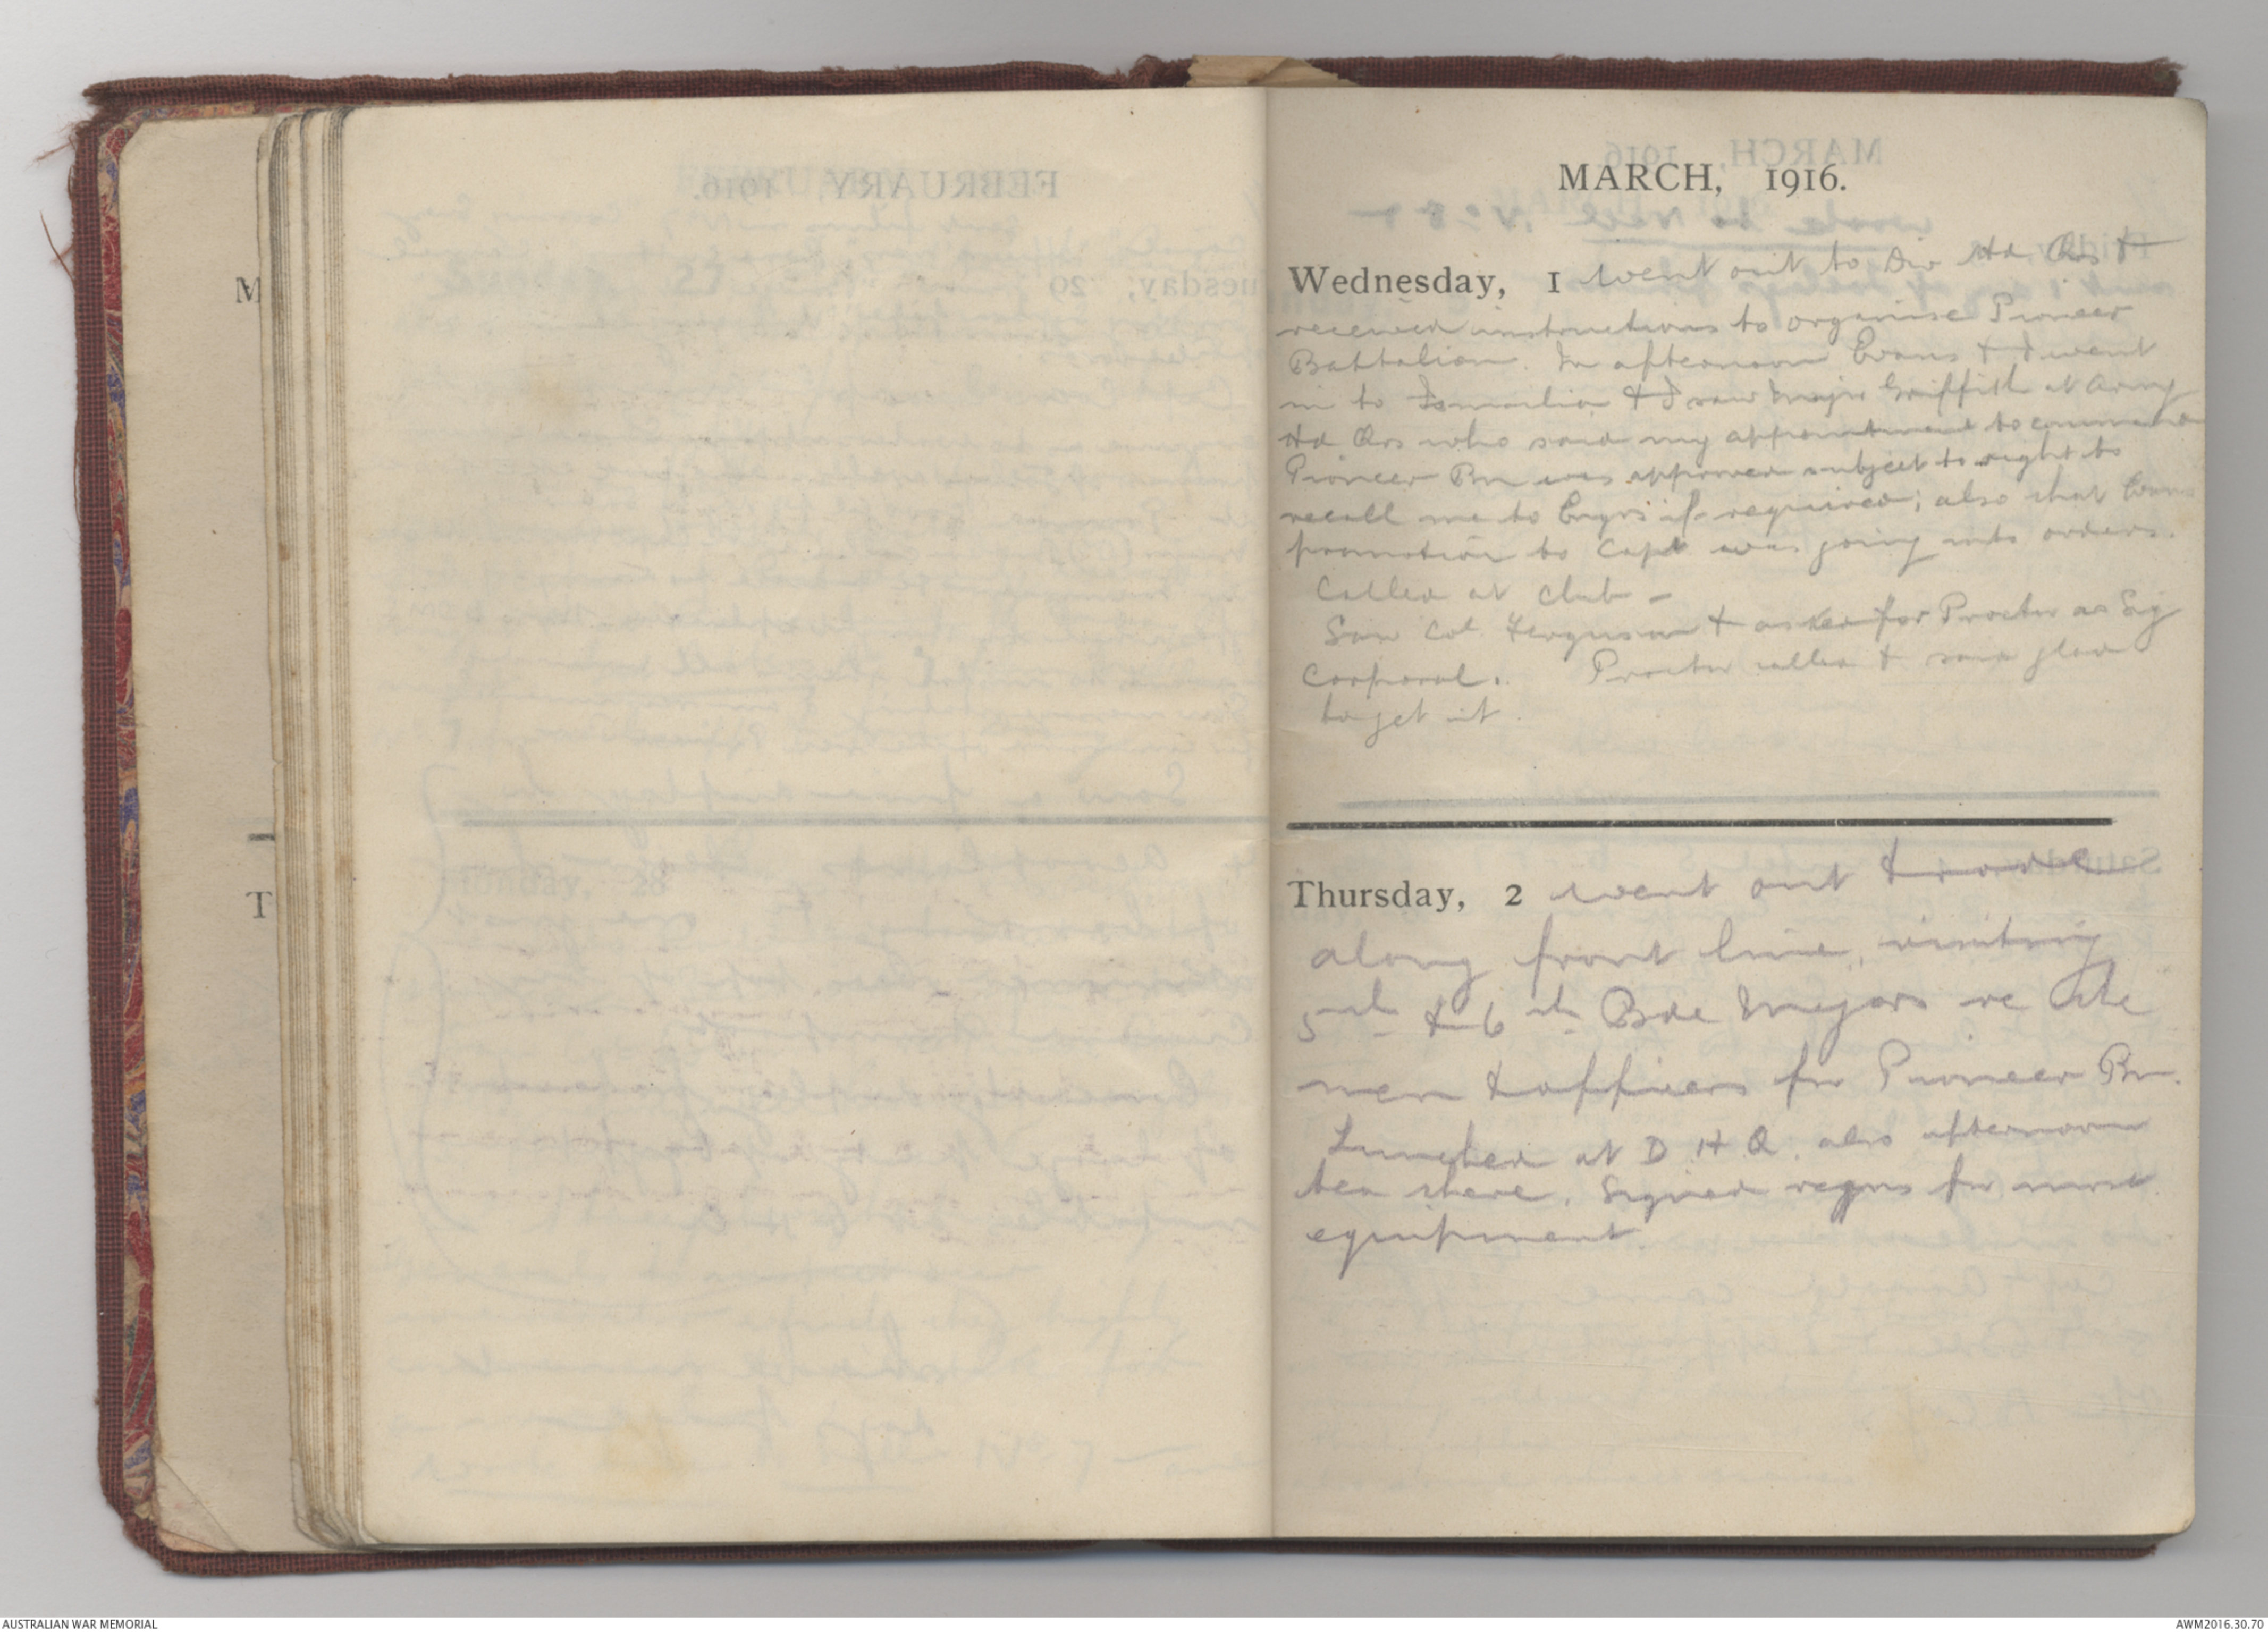 MARCH, 1916.
Wednesday, 1 Went out to Div Hd Qrs &
received instructions to organise Pioneer
Battalion. In afternoon Evans & I went
in to Ismailia & I saw Major Griffith at Army
Hd Qrs who said my appointment to command
Pioneer Bn was approved subject to right to
recall me to Engrs if required; also that Evans
promotion to Capt was going into orders.
Called at Club -
Saw Col. Ferguson & asked for Procter as Sig
Corporal. Procter called & said glad
to get it.
Thursday, 2 Went out & rode
along front line, visiting
5th & 6th Bde Majors re the
men & officers for Pioneer Bn.
Lunched at D H Q. also afternoon
tea there. Signed reqns for more
equipment.
M
T
AUSTRALIAN WAR MEMORIAL
AWM2016.30.70